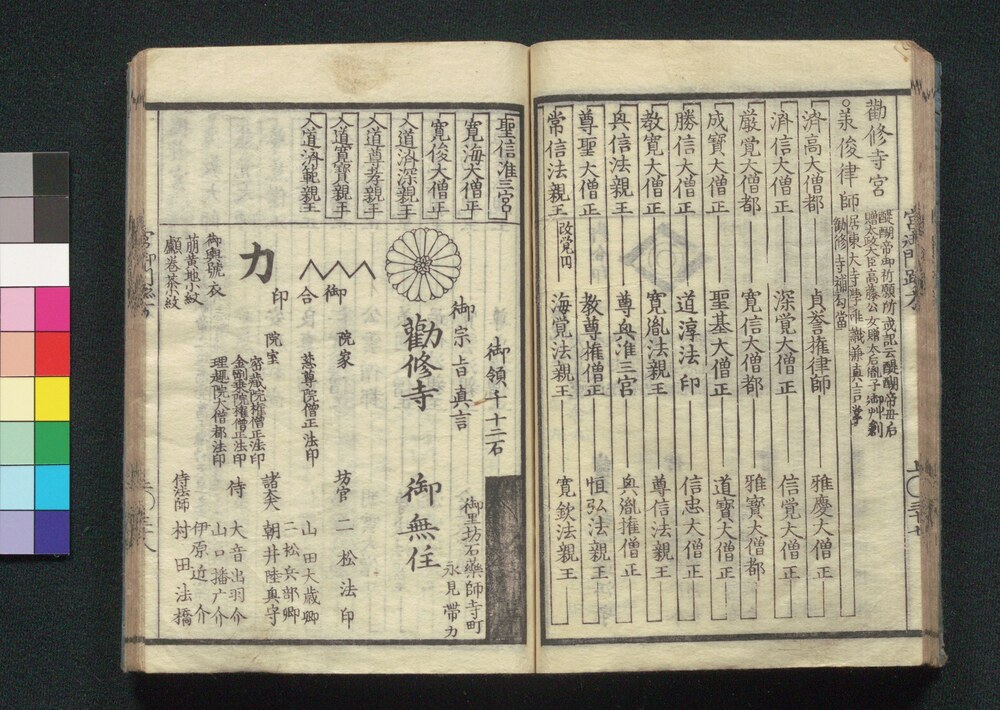 勸修寺宮
○羨俊律師
醍醐帝御祈願所或記云醍醐帝母后
贈太政大臣高藤公女贈太后胤子御艸創
居東大寺學唯識兼真言掌
勧修寺補勾當
済高大僧都
貞誉権律師
雅慶大僧正
済信大僧正
深覚大僧正
信覚大僧正
厳覚大僧都
寛信大僧都
雅寶大僧都
成寶大僧正
聖基大僧正
道寶大僧正
勝信大僧正
道淳法印
信忠大僧正
教寛大僧正
寛胤法親王
尊信法親王
興信法親王
尊興准三宮
興胤権僧正
尊聖大僧正
教尊権僧正
恒弘法親王
常信法親王
改覚円
海覚法親王
寛欽法親王
聖信准三宮
寛海大僧正
寛俊大僧正
入道済深親王
入道尊孝親王
入道寛寶親王
入道済範親王
御領千十二石
御里坊石藥師寺町
永見帶力
御宗旨真言
勸修寺
御無住
御
合
印
力
院家
慈尊院僧正法印
坊官
二松法印
院室
密蔵院権僧正法印
金剛乗院権僧正法印
理趣院大僧都法印
諸大夫
山田大蔵卿
二松兵部卿
朝井陸奥守
侍
大音出羽介
山口播广介
伊原近介
侍法師
村田法橋
御輿號衣
萠黄地小紋
顱巻茶小紋